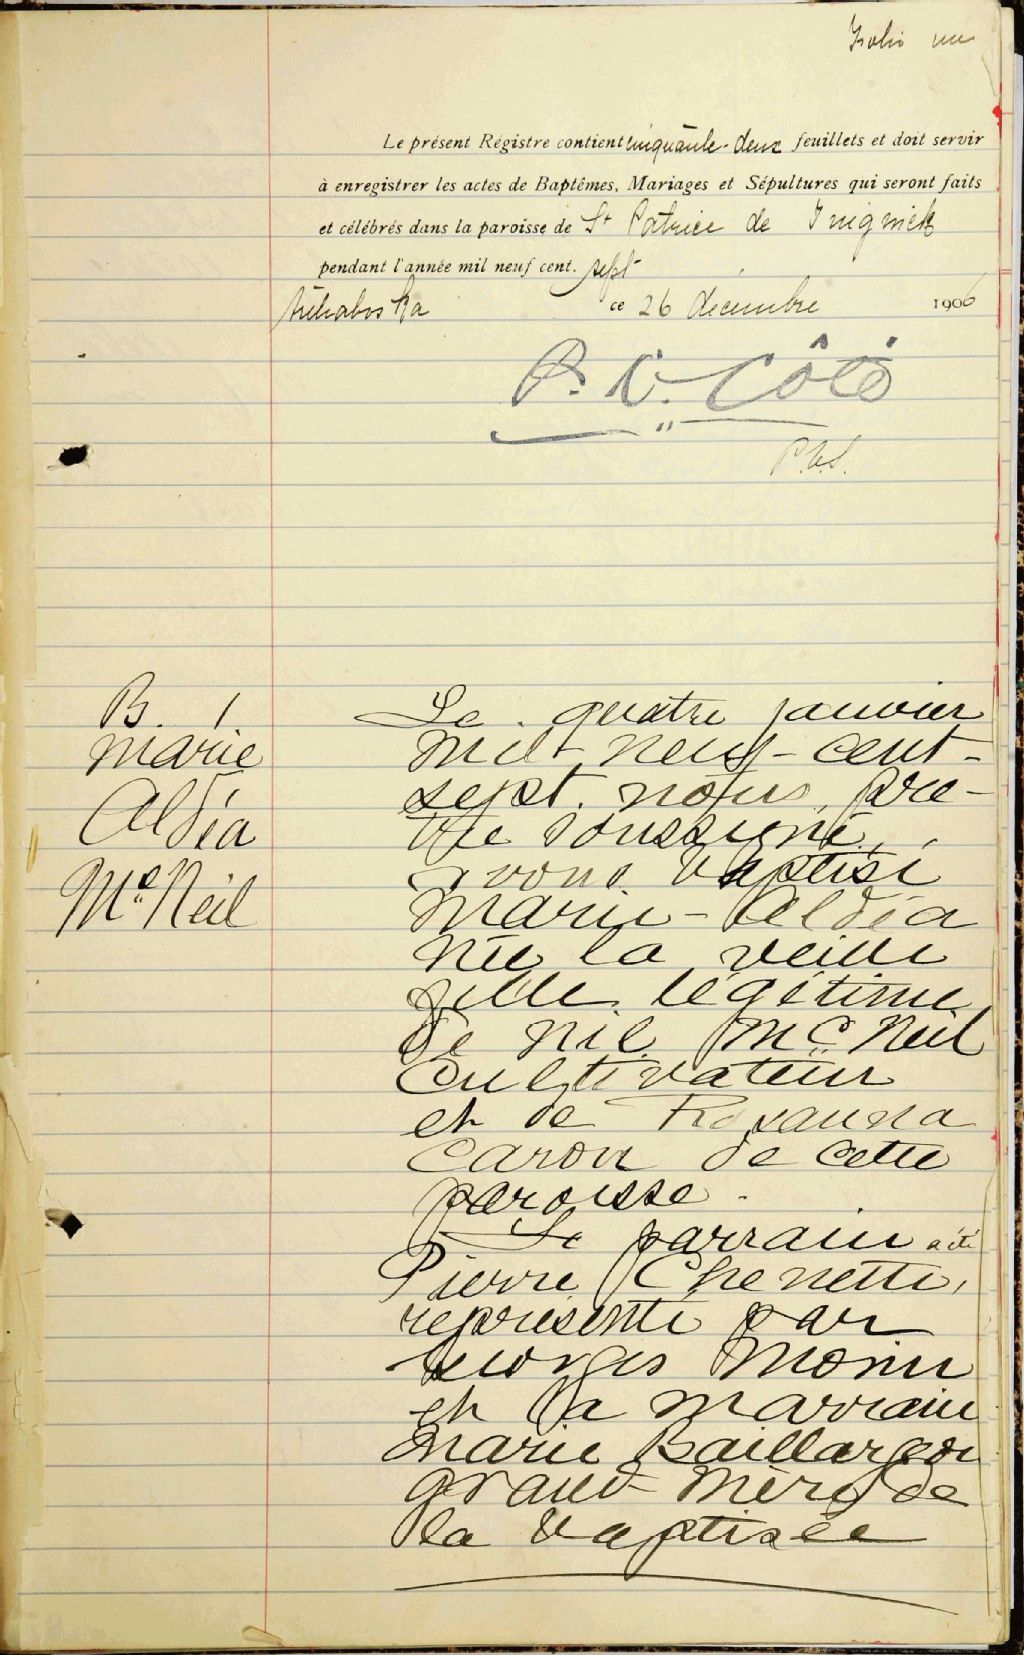 Folio un
Le présent Régistre contient cinquante-deux feuillets et doit servir
à enregistrer les actes de Baptêmes, Mariages et Sépultures qui seront faits
et célébrés dans la paroisse de St Patrice de Tingwick
pendant l'année mil neuf cent. sept
Arthabaska ce 26 décembre 1906
P. N. Côté
P.C.S.
B. 1
Marie
Aldéa
McNeil
Le quatre janvier
mil neuf-cent-
sept. nous, prê-
tre soussigné,
avons baptisé
Marie-Aldéa
née la veille
fille légitime
de Nil McNeil
cultivateur
et de Rosanna
Caron de cette
paroisse.
Le parrain a été
Pierre Chenette,
représenté par
Georges Morin
et la marraine
Marie Baillargeon
grand-mère de
la baptisée